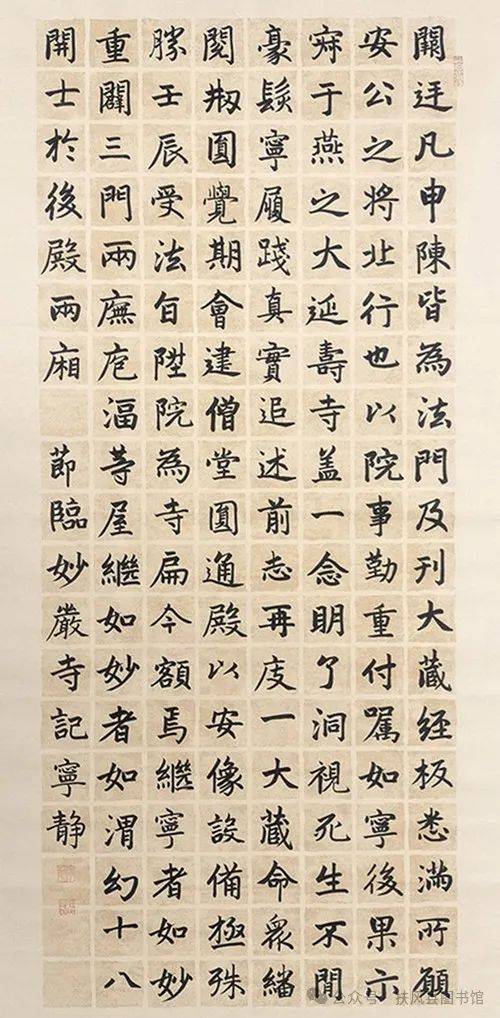 關迋凡申陳皆為法門及刊大藏經板悉滿所願
安公之將北行也以院事勤重付囑如寧後果示
寂于燕之大延壽寺蓋一念明了洞視死生不間
豪髮寧履踐真實追述前志再度一大藏命眾繙
閱刱圓覺期會建僧堂圓通殿以安像設備極殊
勝壬辰受法旨陞院為寺扁今額焉繼寧者如妙
重闢三門兩廡庖湢等屋繼如妙者如渭幻十八
開士於後殿兩廂 節臨妙嚴寺記寧靜
公众号·扶风县图书馆